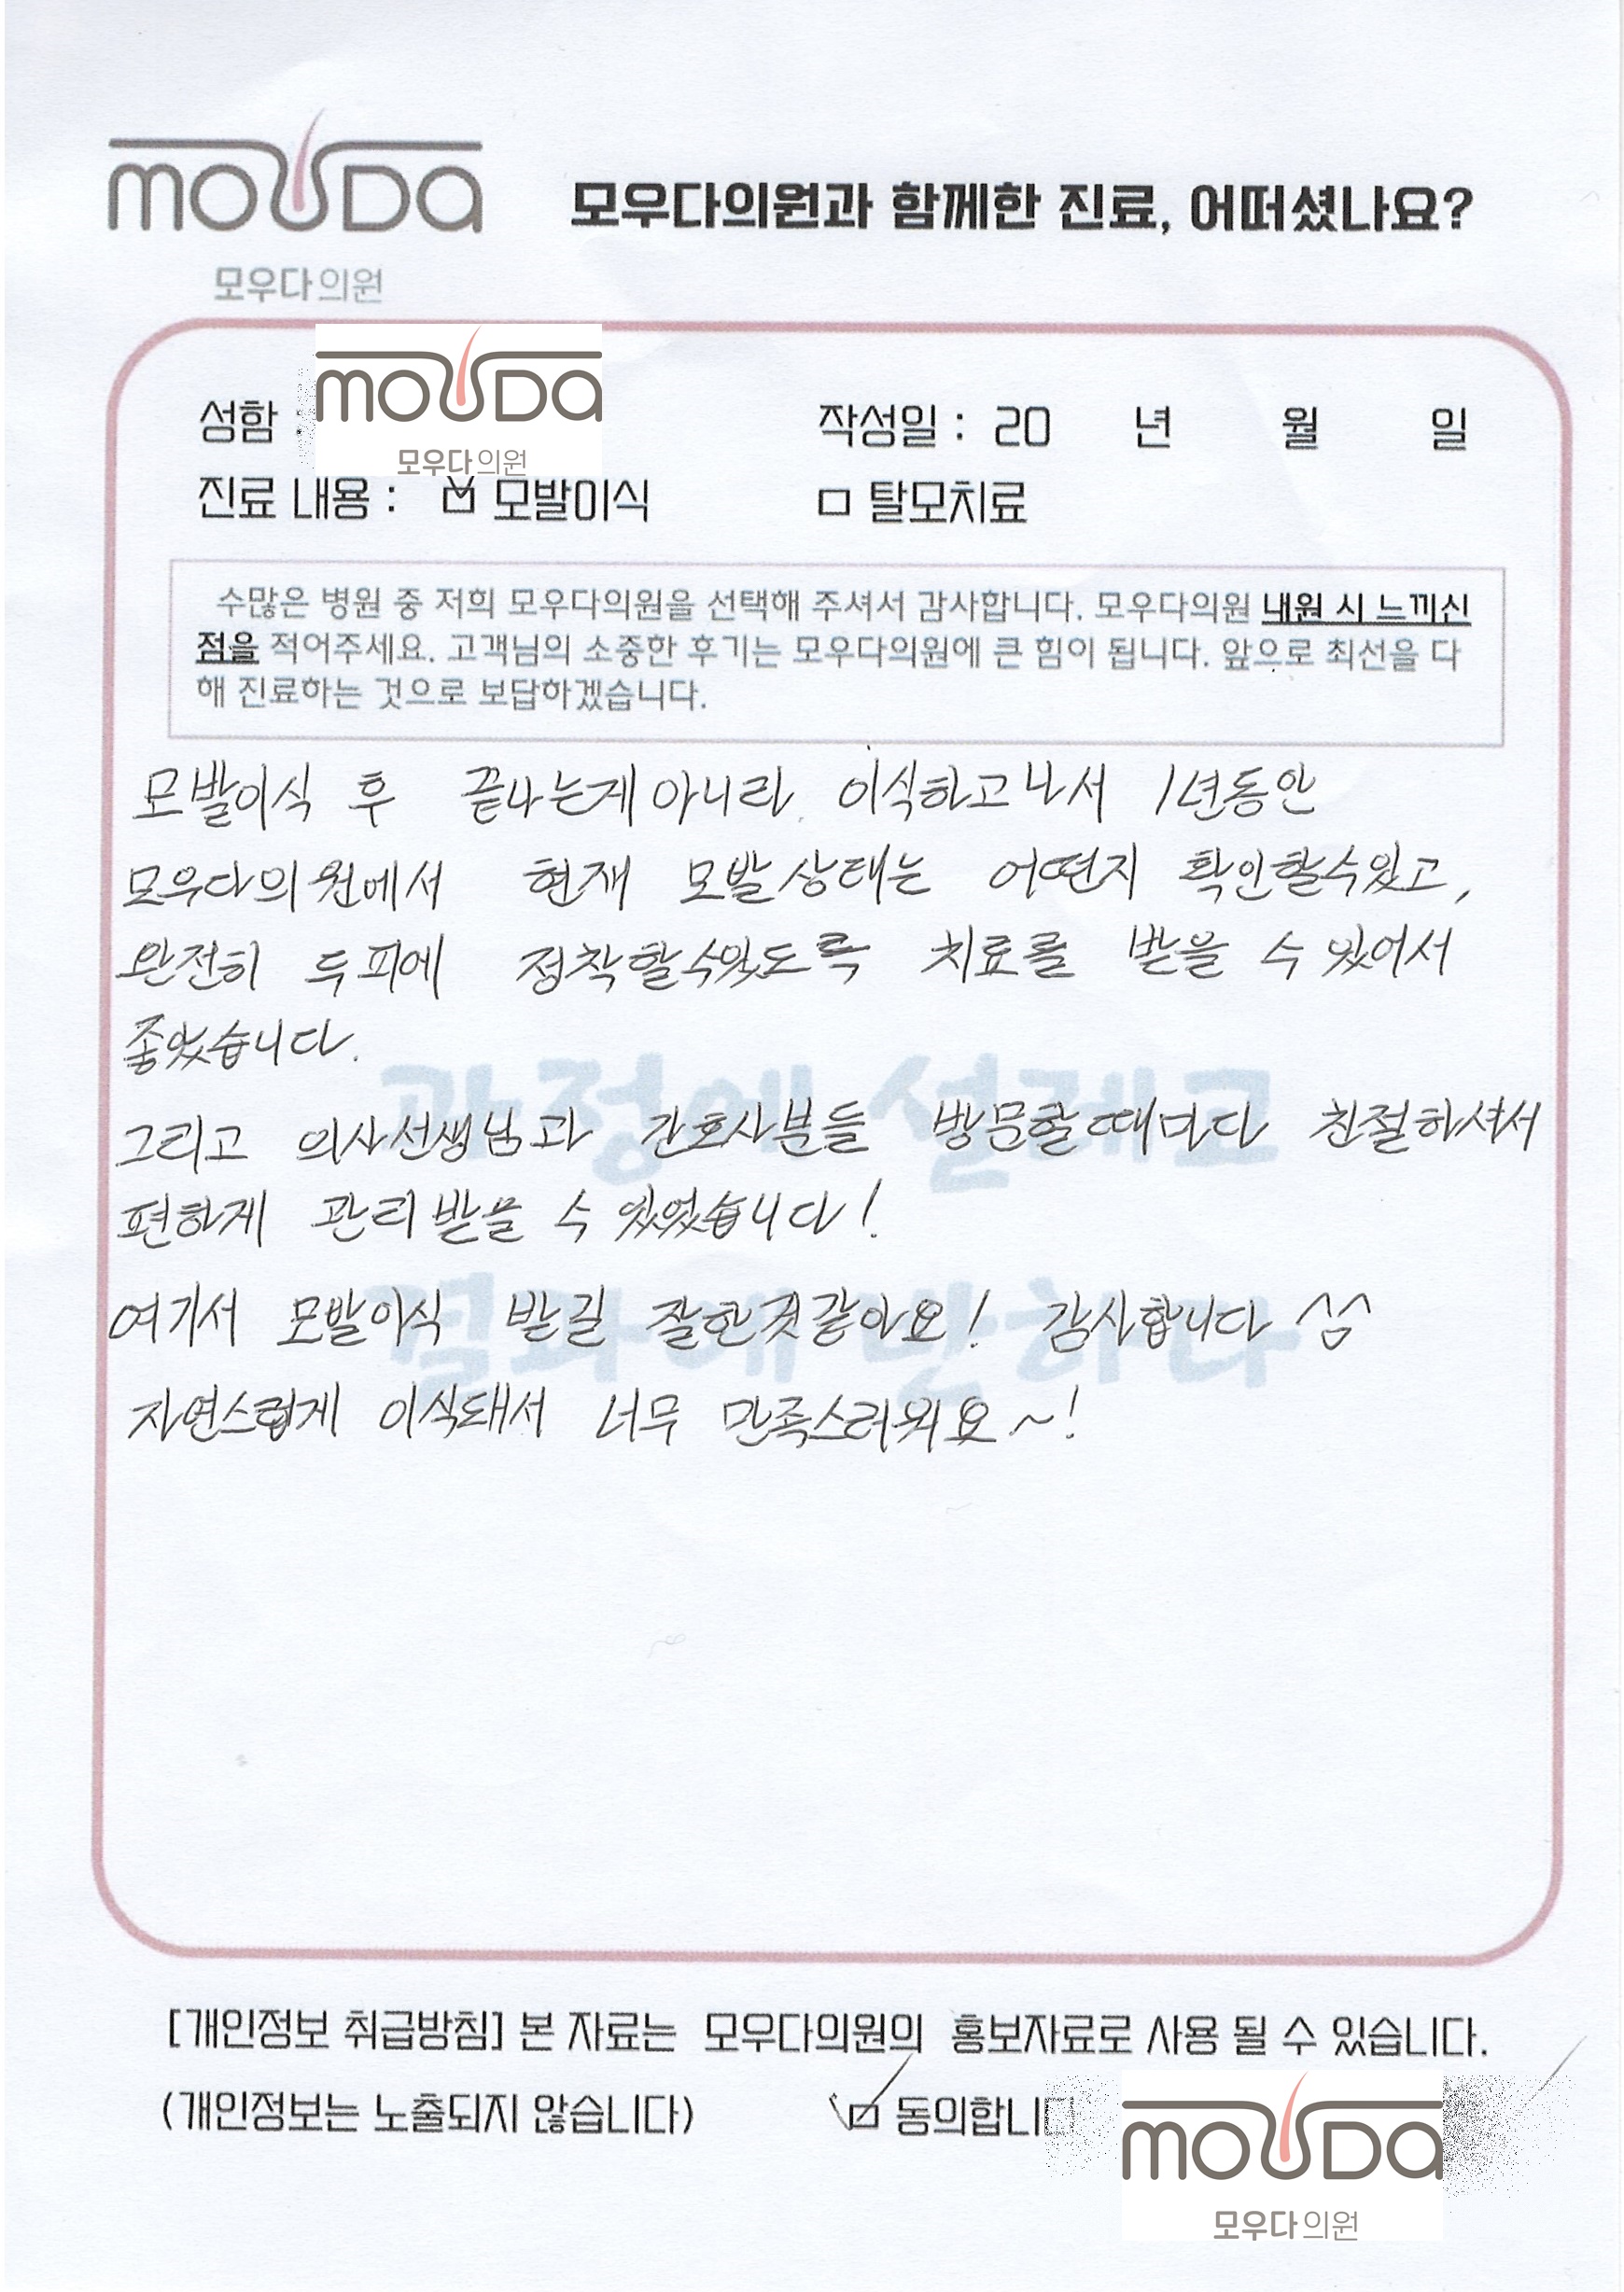 mouDa
모우다의원
모우다의원과 함께한 진료, 어떠셨나요?
mouDa
모우다의원
성함 :
작성일 : 20 년 월 일
진료 내용 : ☑ 모발이식 □ 탈모치료
수많은 병원 중 저희 모우다의원을 선택해 주셔서 감사합니다. 모우다의원 내원 시 느끼신
점을 적어주세요. 고객님의 소중한 후기는 모우다의원에 큰 힘이 됩니다. 앞으로 최선을 다
해 진료하는 것으로 보답하겠습니다.
모발이식 후 끝나는게 아니라 이식하고나서 1년동안
모우다의원에서 현재 모발상태는 어떤지 확인할수있고,
완전히 두피에 정착할수있도록 치료를 받을 수 있어서
좋았습니다.
과정에 설레고
그리고 의사선생님과 간호사분들 방문할때마다 친절하셔서
편하게 관리받을 수 있었습니다!
결과에 반하다
여기서 모발이식 받길 잘한것같아요! 감사합니다 ^^
자연스럽게 이식돼서 너무 만족스러워요~!
[개인정보 취급방침] 본 자료는 모우다의원의 홍보자료로 사용 될 수 있습니다.
(개인정보는 노출되지 않습니다) ☑ 동의합니다
mouDa
모우다의원